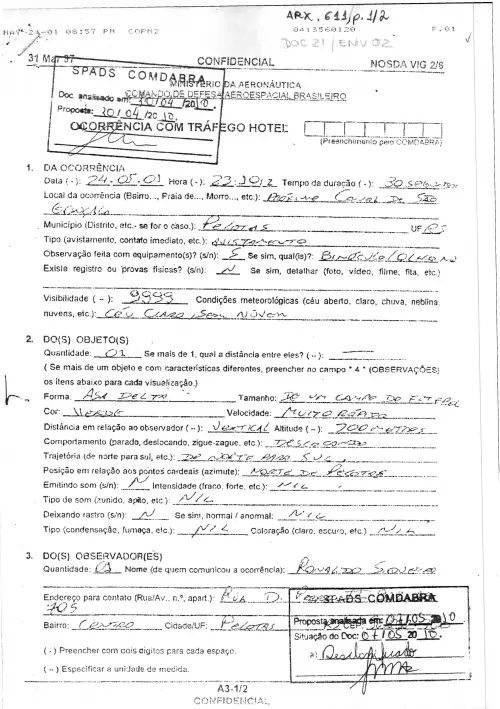 ARX. 611/p.1/2
MAY-24-01 08:57 PM COPM2 0413560120 P.01
DOC 21 / ENV 02
31 Mar 97 CONFIDENCIAL NOSDA VIG 2/6
SPADS COMDABRA
MINISTÉRIO DA AERONÁUTICA
Doc analisado em: 30/04/2010 COMANDO DE DEFESA AEROESPACIAL BRASILEIRO
Proposta: 30/04/2010.
OCORRÊNCIA COM TRÁFEGO HOTEL
(Preenchimento pelo COMDABRA)
1. DA OCORRÊNCIA
Data (-): 24.05.01 Hora (-): 23:10/2 Tempo da duração (-): 30 SEGUNDOS
Local da ocorrência (Bairro..., Praia de..., Morro..., etc.): PRÓXIMO CANAL DE SÃO
GONÇALO
Município (Distrito, etc.- se for o caso.): PELOTAS UF RS
Tipo (avistamento, contato imediato, etc.): AVISTAMENTO
Observação feita com equipamento(s)? (s/n): S Se sim, qual(is)?: BINÓCULO/OLHO NU
Existe registro ou provas físicas? (s/n): N Se sim, detalhar (foto, vídeo, filme, fita, etc.)
Visibilidade ( -- ): 9999 Condições meteorológicas (céu aberto, claro, chuva, neblina,
nuvens, etc.): CÉU CLARO, SEM NUVEM
2. DO(S) OBJETO(S)
Quantidade: 01 Se mais de 1, qual a distância entre eles? ( -- ):
( Se mais de um objeto e com características diferentes, preencher no campo " 4 " (OBSERVAÇÕES)
os itens abaixo para cada visualização.)
Forma: ASA DELTA Tamanho: DE UM CAMPO DE FUTEBOL
Cor: VERDE Velocidade: MUITO RÁPIDO
Distância em relação ao observador ( -- ): VERTICAL Altitude ( -- ): 700 METROS
Comportamento (parado, deslocando, zigue-zague, etc.): DESLOCANDO
Trajetória (de norte para sul, etc.): DE NORTE PARA SUL
Posição em relação aos pontos cardeais (azimute): NORTE DE PELOTAS
Emitindo som (s/n): N Intensidade (fraco, forte, etc.): NIL
Tipo de som (zunido, apito, etc.): NIL
Deixando rastro (s/n): N Se sim, normal / anormal: NIL
Tipo (condensação, fumaça, etc.): NIL Coloração (claro, escuro, etc.) NIL
3. DO(S) OBSERVADOR(ES)
Quantidade: 01 Nome (de quem comunicou a ocorrência): RONALDO
Endereço para contato (Rua/Av., n.º, apart.): RUA D.
705
SPADS COMDABRA
Proposta analisada em: 07/05/2010
Bairro: CENTRO Cidade/UF: PELOTAS CEP:
Situação do Doc: 07/05 20 10.
a) Desclassificado
( - ) Preencher com dois dígitos para cada espaço.
( -- ) Especificar a unidade de medida.
A3-1/2
CONFIDENCIAL